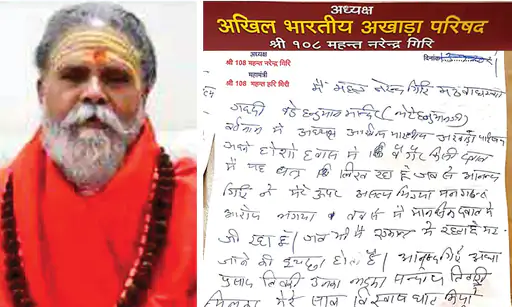 अध्यक्ष
अखिल भारतीय अखाड़ा परिषद
श्री १०८ महन्त नरेन्द्र गिरि
अध्यक्ष
श्री 108 महन्त नरेन्द्र गिरि
दिनांक
महामंत्री
श्री 108 महन्त हरि गिरी
मैं महन्त नरेन्द्र गिरि मठ बाघम्बरी
गद्दी बडे हनुमान मन्दिर
वर्तमान में अध्यक्ष अखिल भारतीय अखाड़ा परिषद
अपने होशो हवास में बगैर किसी दबाव
में यह पत्र लिख रहा हूँ जब से आनन्द
गिरि ने मेरे ऊपर असत्य मिथ्या मनगढंत
आरोप लगाया तब से मैं मानसिक दबाव में
जी रहा हूँ जब भी मैं एकान्त में रहता हूँ मर
जाने की इच्छा होती है आनन्द गिरि आद्या
प्रसाद तिवारी उनका लड़का सन्दीप तिवारी
मिलकर मेरे साथ विश्वासघात किया